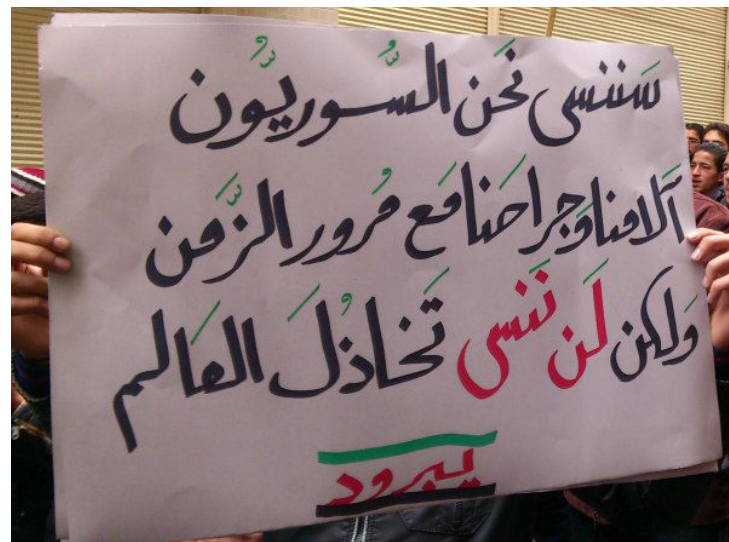 سَننسى نَحن السُّـوريّون
آلامنا وَجراحنا مَع مُرور الزَّمن
وَلكن لَن نَنسى تَخاذُلَ العَالم
يبرود